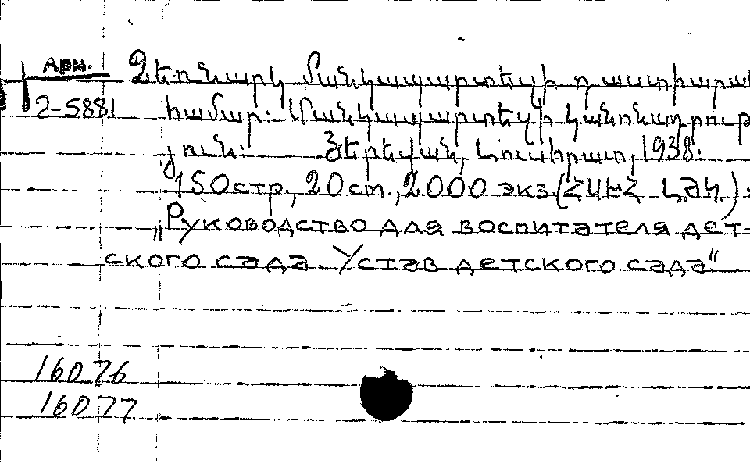 Арм. Ձեռնարկ Մանկապարտեզի դաստիարա
2-5881 համար: Մանկապարտեզի կանոնադրութ
յուն: Յերեվան, Լուսհրատ, 1938.
150 стр., 20 ст., 2000 экз. (ՀՍԽՀ ԼԺԿ):
„Руководство для воспитателя дет-
ского сада. Устав детского сада“
16076
16077